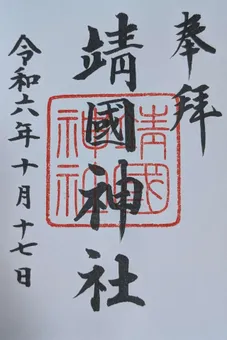 奉拝
靖國神社
靖國神社
令和六年十月十七日